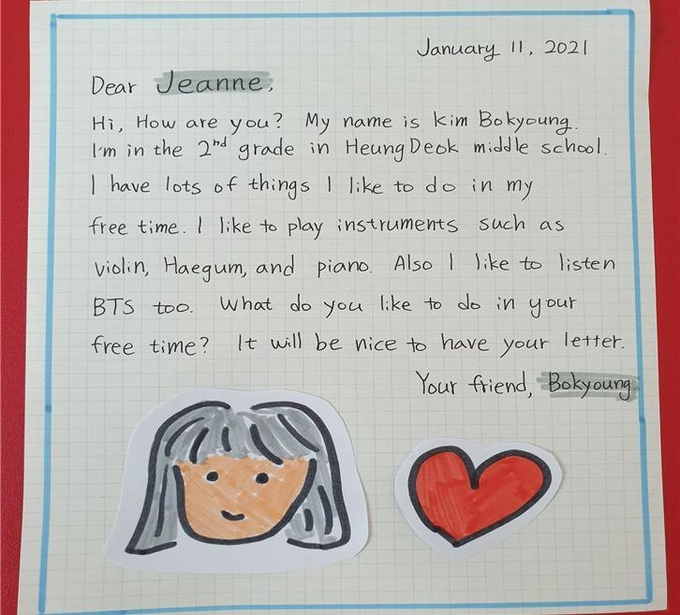 January 11, 2021
Dear Jeanne,
Hi, How are you? My name is Kim Bokyoung.
I'm in the 2nd grade in HeungDeok middle school.
I have lots of things I like to do in my
free time. I like to play instruments such as
violin, Haegum, and piano. Also I like to listen
BTS too. What do you like to do in your
free time? It will be nice to have your letter.
Your friend, Bokyoung.